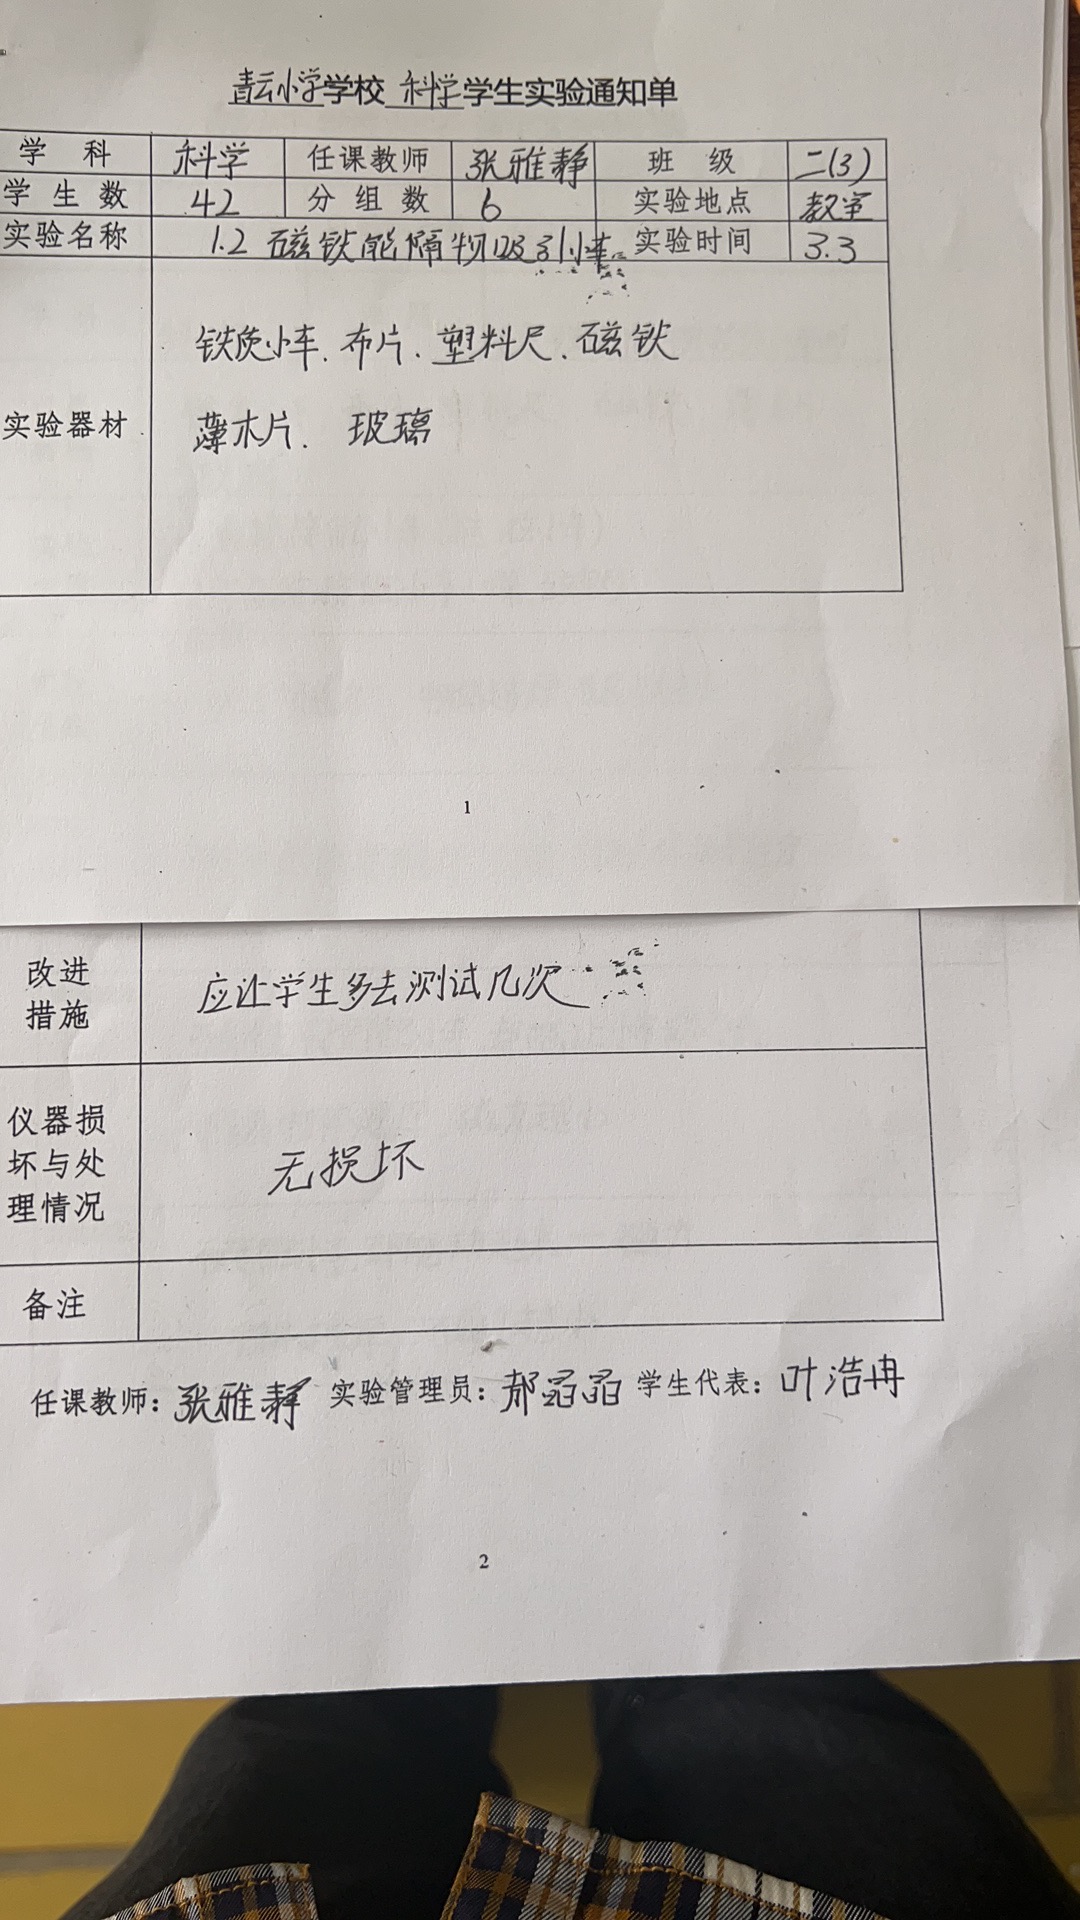 青云小学学校 科学学生实验通知单
学 科 科学 任课教师 张雅静 班 级 二(3)
学 生 数 42 分 组 数 6 实验地点 教室
实验名称 1.2 磁铁能隔物吸引小车 实验时间 3.3
铁质小车、布片、塑料尺、磁铁
实验器材 薄木片、玻璃
1
改进
措施 应让学生多去测试几次
仪器损
坏与处
理情况 无损坏
备注
任课教师：张雅静 实验管理员：郁晶晶 学生代表：叶浩冉
2